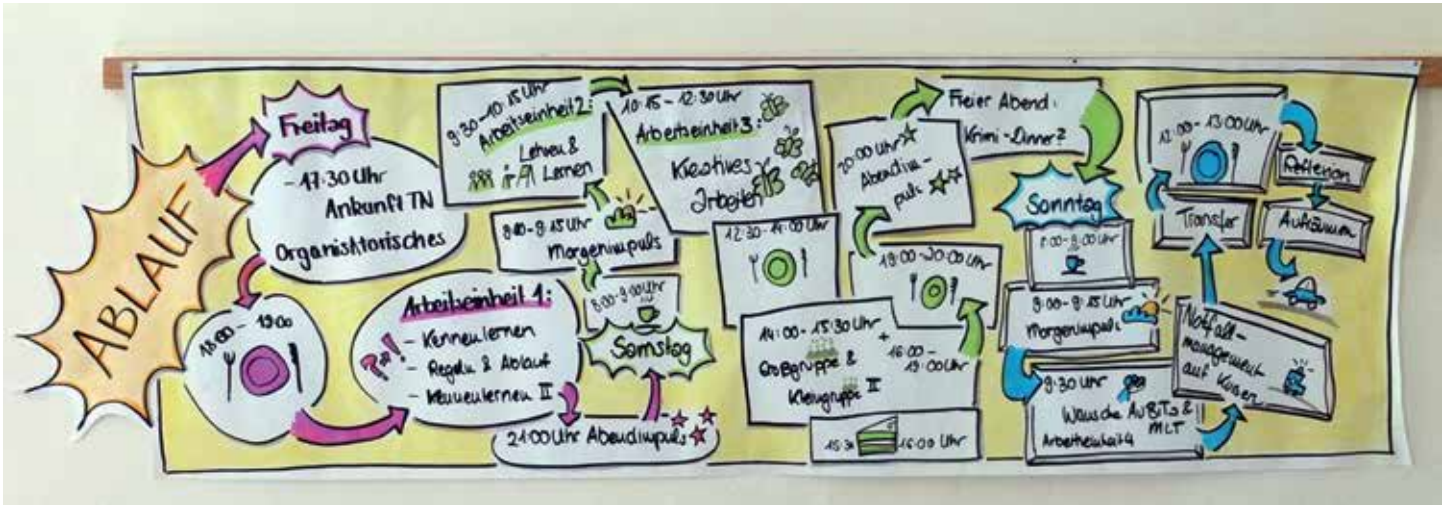 ABLAUF
Freitag
- 17:30 Uhr
Ankunft TN
Organisktorisches
18:00 - 19:00
Arbeitseinheit 1:
- Kennenlernen
- Regeln & Ablauf
- Kennenlernen II
21:00 Uhr Abendimpuls
Samstag
8:00-9:00 Uhr
9:15 Uhr
Morgenimpuls
9:30-10:15 Uhr
Arbeitseinheit 2:
Lehren &
Lernen
10:15 - 12:30 Uhr
Arbeitseinheit 3:
Kreatives
Arbeiten
12:30 - 14:00 Uhr
14:00 - 15:30 Uhr
+
Großgruppe &
Kleingruppe II
16:00 -
19:00 Uhr
15:30
16:00 Uhr
19:00-20:00 Uhr
20:00 Uhr
Abendim-
puls
Freier Abend:
Krimi-Dinner?
Sonntag
8:00-9:00 Uhr
9:00-9:15 Uhr
Morgenimpuls
9:30 Uhr
&
MLT
Arbeitseinheit 4
Notfall-
management
auf Kursen
Transfer
12:00 - 13:00 Uhr
Reflexion
Aufräumen